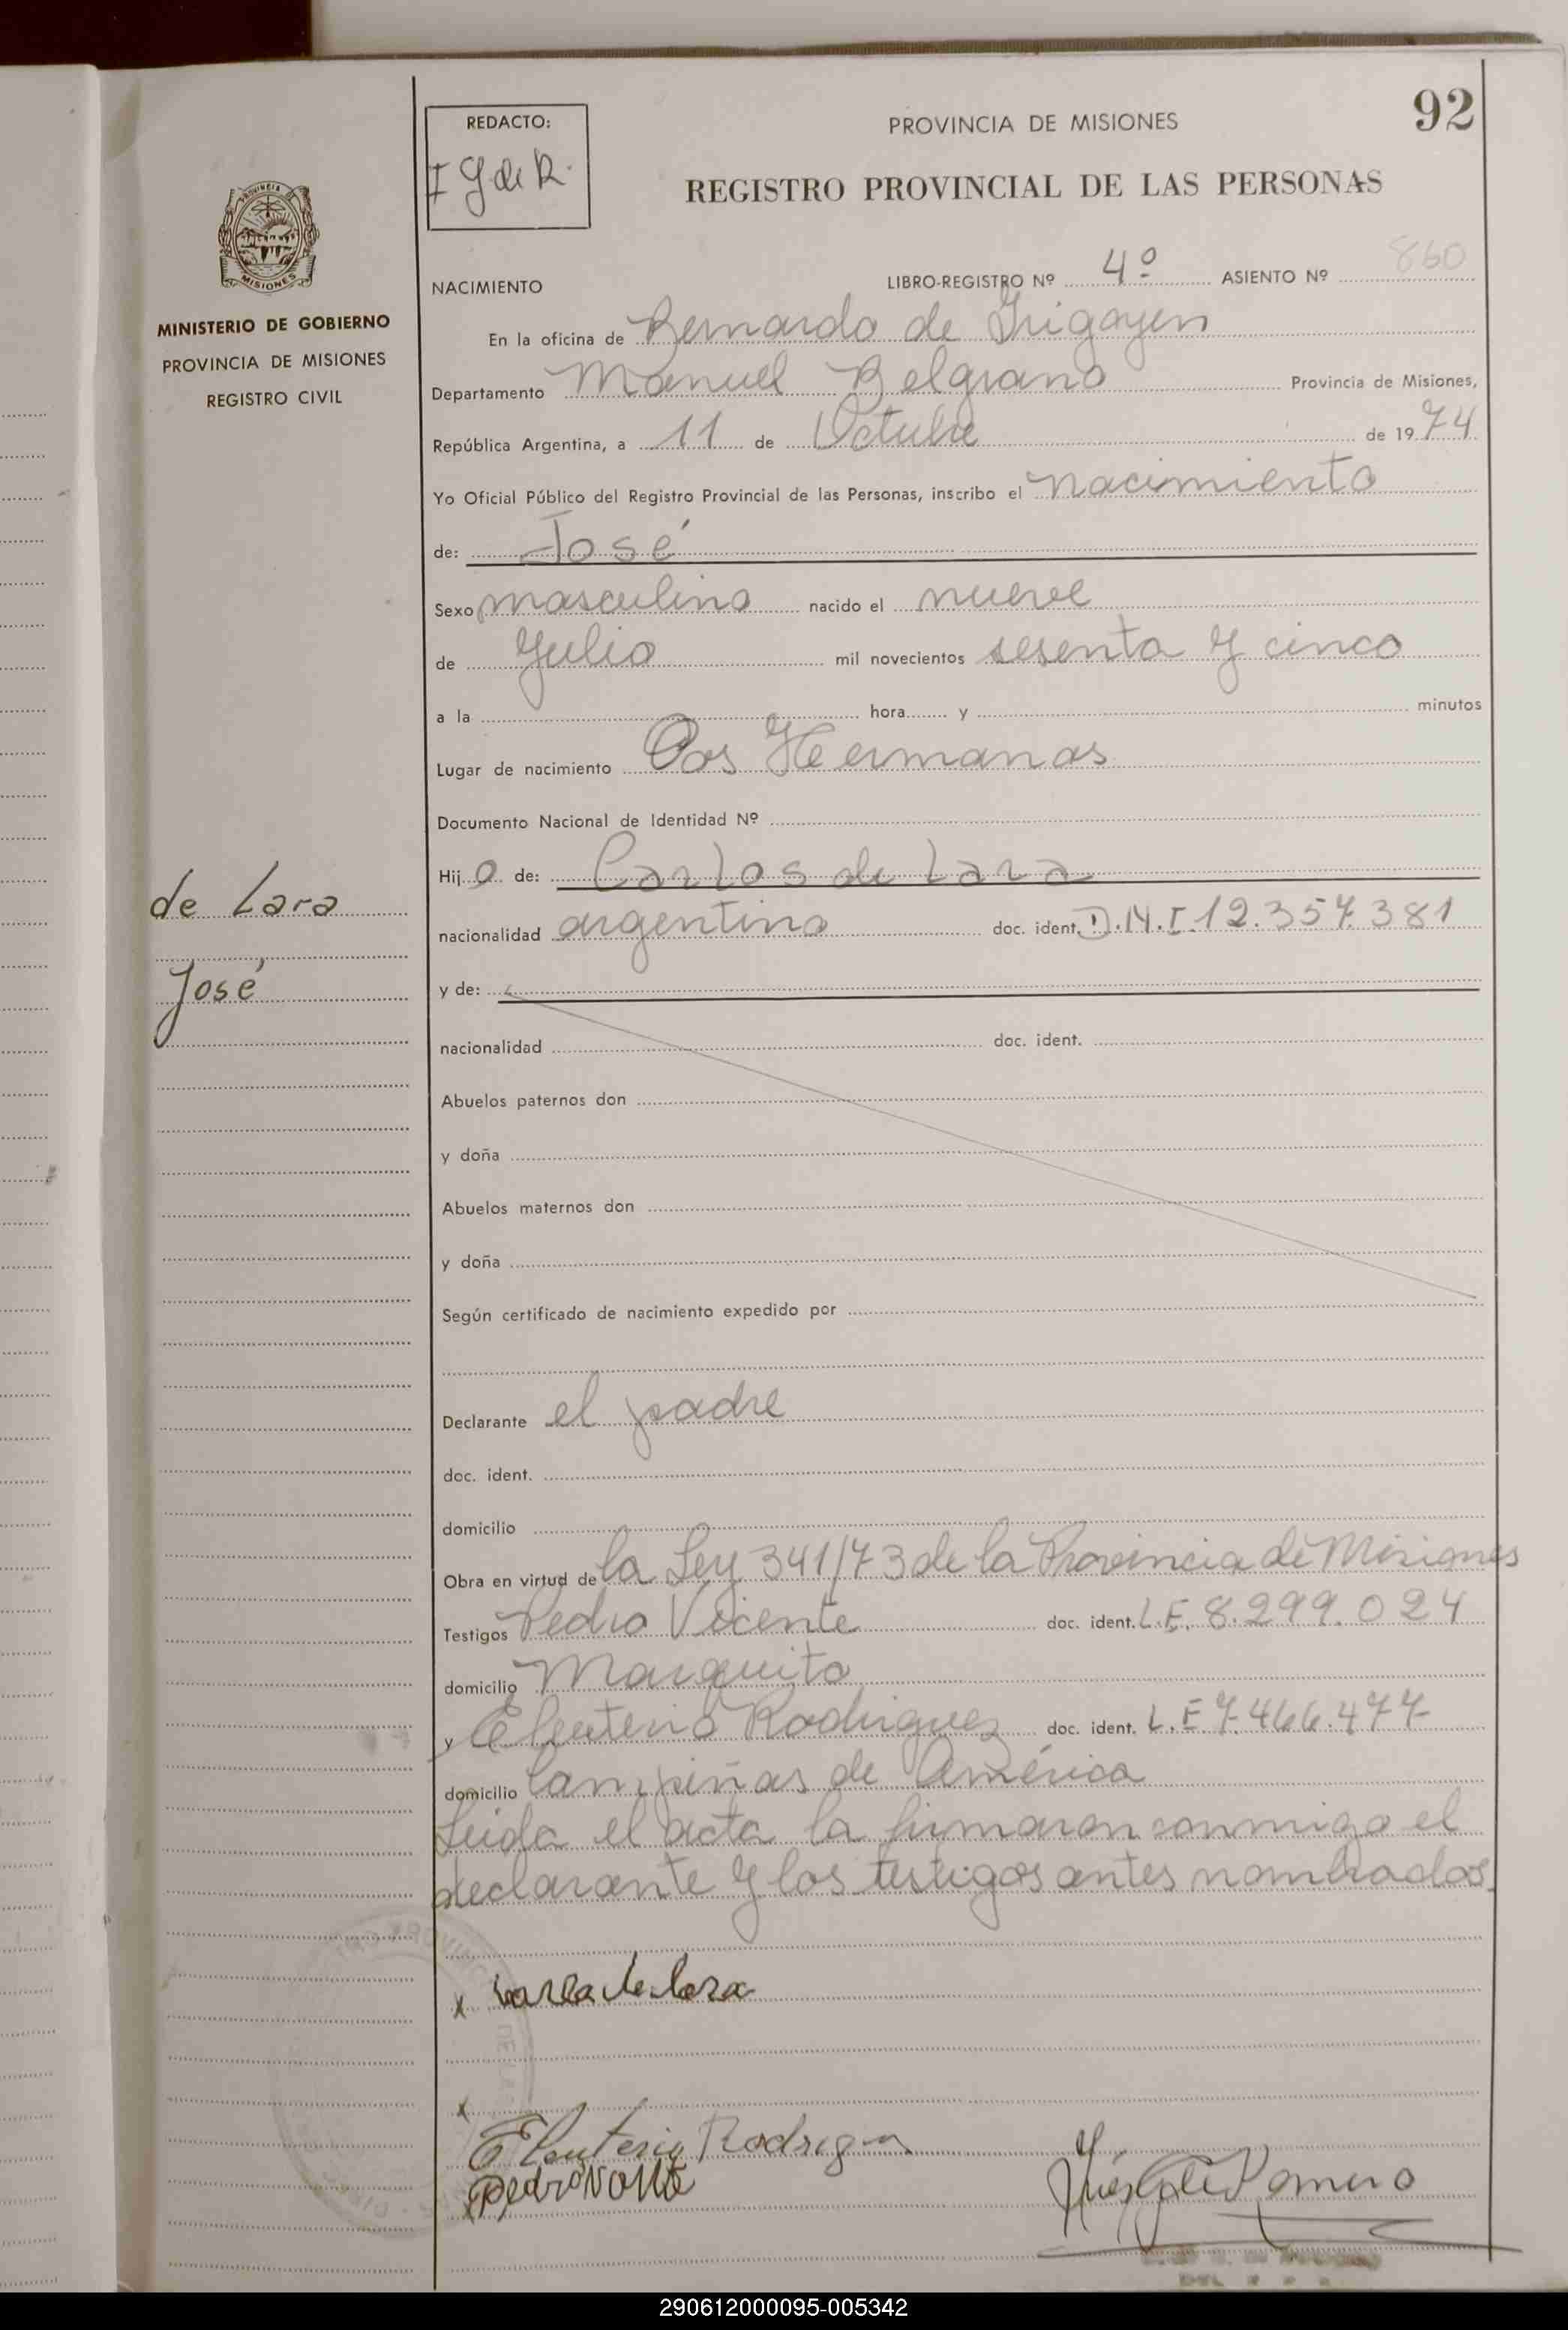 92
REDACTO:
I G de R.
PROVINCIA DE MISIONES
REGISTRO PROVINCIAL DE LAS PERSONAS
MISIONES
MINISTERIO DE GOBIERNO
PROVINCIA DE MISIONES
REGISTRO CIVIL
de Lara
José
NACIMIENTO LIBRO-REGISTRO Nº 4º ASIENTO Nº 860
En la oficina de Bernardo de Irigoyen
Departamento Manuel Belgrano Provincia de Misiones,
República Argentina, a 11 de Octubre de 1974
Yo Oficial Público del Registro Provincial de las Personas, inscribo el nacimiento
de: José
Sexo masculino nacido el nueve
de Julio mil novecientos sesenta y cinco
a la hora y minutos
Lugar de nacimiento Dos Hermanas
Documento Nacional de Identidad Nº
Hijo de: Carlos de Lara
nacionalidad argentino doc. ident. D.N.I. 12.357.381
y de:
nacionalidad doc. ident.
Abuelos paternos don
y doña
Abuelos maternos don
y doña
Según certificado de nacimiento expedido por
Declarante el padre
doc. ident.
domicilio
Obra en virtud de la Ley 341/73 de la Provincia de Misiones
Testigos Pedro Vicente doc. ident. L.E. 8.299.024
domicilio Marquito
y Eleuterio Rodriguez doc. ident. L.E 7.466.477
domicilio Campiñas de América
Leida el acta la firmaron conmigo el
declarante y los testigos antes nombrados.
x de Lara
x
Eleuterio Rodrigu
Pedro
Romero
290612000095-005342